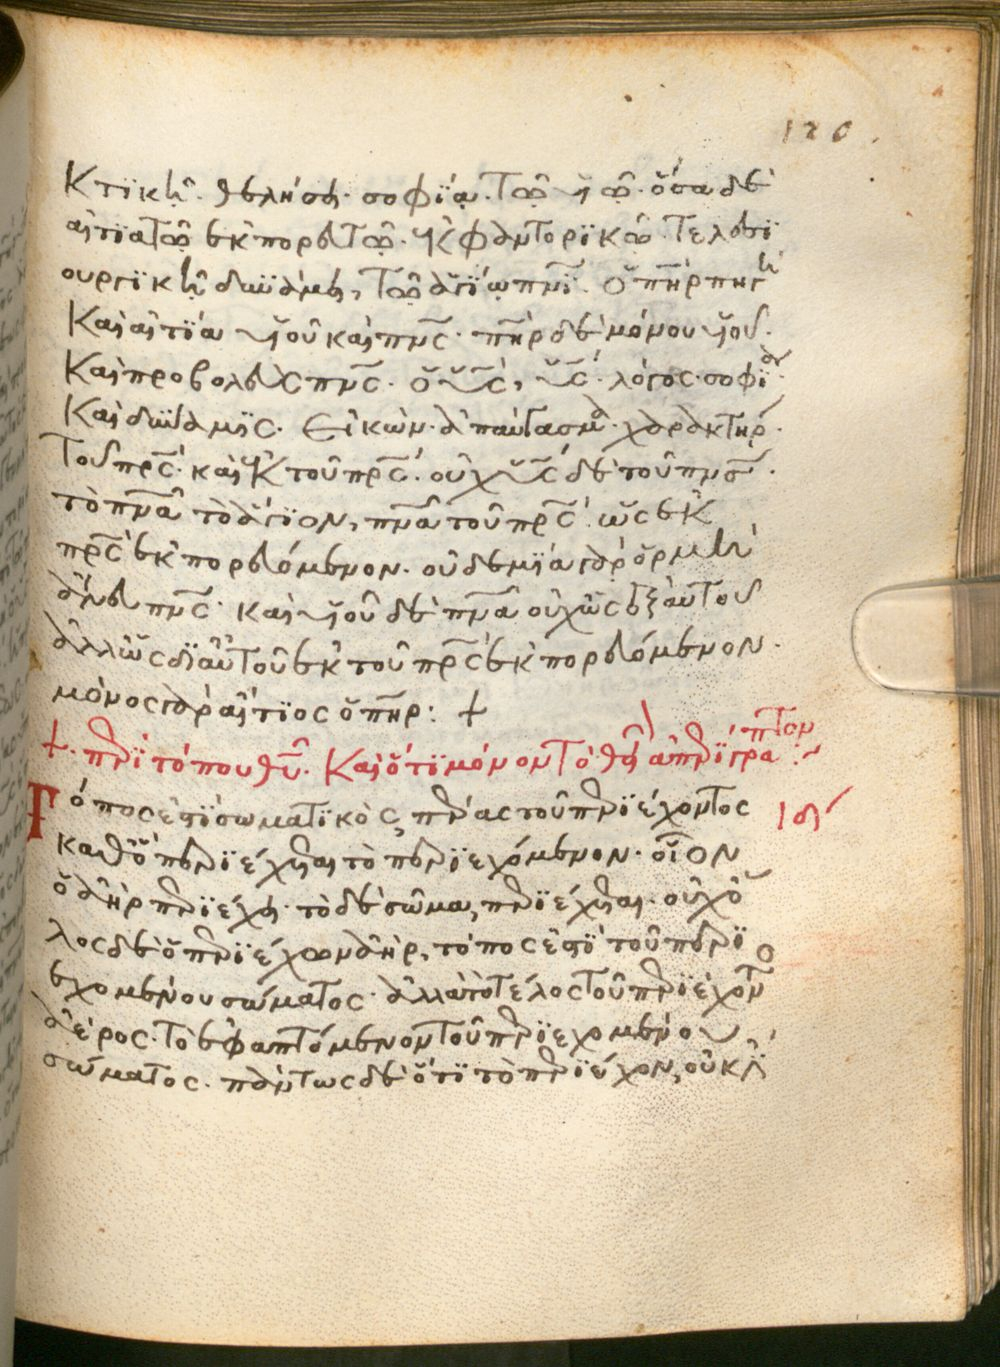 Κτϊκῆ. θελήσει. σοφίᾳ. τῶ υἱῶ. ὅσα δὲ
αἰτϊατῶ ἐκπορευτῶ. ἐκφαντορϊκῶ. τελεσϊ
ουργϊκῆ δυνάμει, τῶ ἁγίω πνϊ. ὁ πηρ πηγὴ
Καὶ αἰτία υἱοῦ καὶ πνς. πηρ δὲ μόνου υἱοῦ.
Καὶ προβολεὺς πνς. ὁ υἱς, υἱς. λόγος. σοφί
Καὶ δύναμϊς. Εἰκὼν. ἀπαύγασμα. χαρακτήρ.
Τοῦ πρς. καὶ ἐκ τοῦ πρς. οὐχ υἱς δὲ τοῦ πνς.
τὸ πνα τὸ ἅγϊον, πνα τοῦ πρς. ὡς ἐκ
πρς ἐκπορευόμενον. οὐδεμία γὰρ ὁρμὴ
ἄνευ πνς. καὶ υἱοῦ δὲ πνα οὐχ ὡς ἐξ αὐτοῦ
ἀλλ' ὡς δϊ' αὐτοῦ ἐκ τοῦ πρς ἐκπορευόμενον.
μόνος γὰρ αἴτϊος ὁ πηρ: +
+. περὶ τόπου θυ. Καὶ ὅτϊ μόνον τὸ θεῖ ἀπερίγρα πτον
Τόπος ἐστὶ σωματϊκὸς, πέρας τοῦ περϊέχοντος
καθ' ὃ περϊέχεται τὸ περϊεχόμενον. οἷον
ὁ ἀὴρ περϊέχει. τὸ δὲ σῶμα, περϊέχεται. οὐχ ὅ
λος δὲ ὁ περϊέχων ἀὴρ, τόπος ἐστὶ τοῦ περϊ
εχομένου σώματος. ἀλλὰ τὸ τέλος τοῦ περϊέχοντο
ἀέρος. τὸ ἐφαπτόμενον τοῦ περϊεχομένου
σώματος. πάντως δὲ ὅτϊ τὸ περϊέχον, οὐκ ἐ